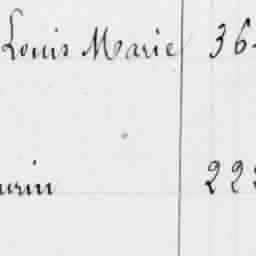 Louis Marie 36
urin 222